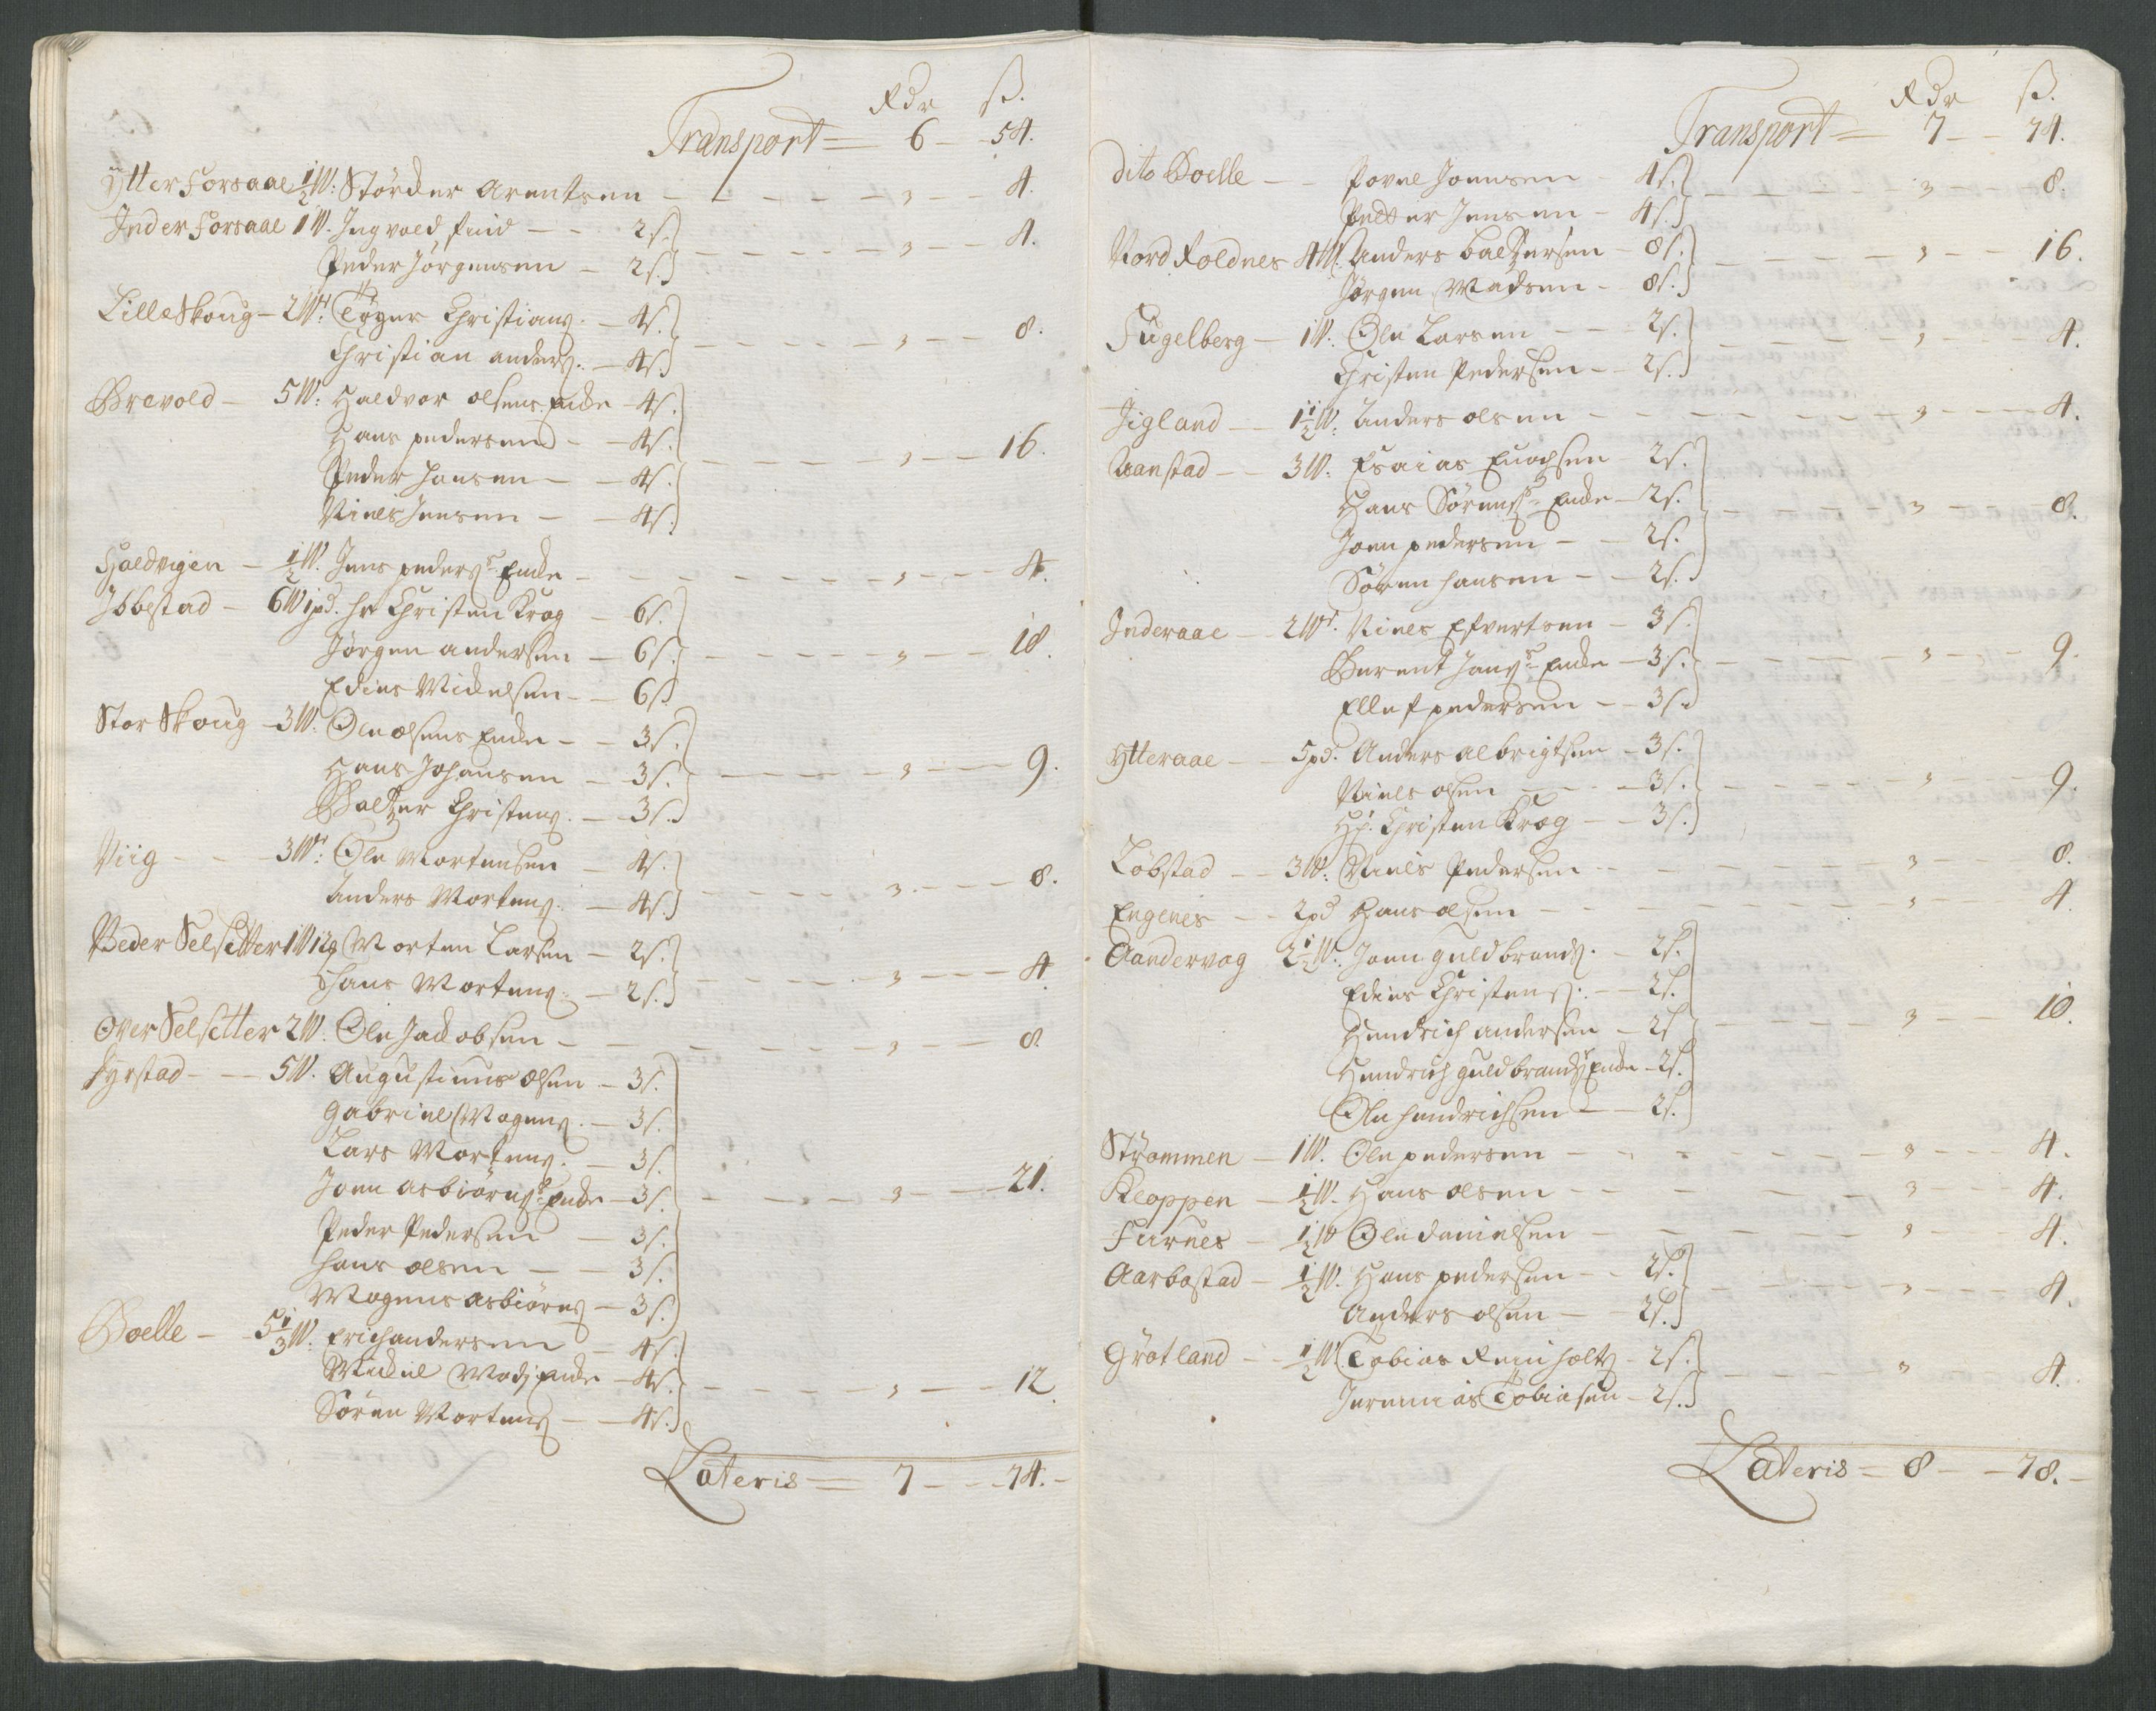 Rdr ß.
Transport = 6 - 54.
Ytter Forsaae ½ W: Störcker Arentsen - - - - 3 - - 4.
Inder Forsaae 1 W. Ingvold find - - 2 s.
Peder Jörgensen - 2 s. - - - - 3 - - 4.
Lille Skoug - 2 W: Töger Christians. - 4 s.
Christian anders. - 4 s. - - - - 3 - - 8.
Brevold - 5 W: Haldvor olsens Encke - 4 s.
Hans pedersen - - 4 s.
Peder Hansen - - 4 s. - - - - 3 - - 16.
Niels Jensen - - 4 s.
Haldvigen - ½ W. Jens peders. Encke - - - - - 3 - - 4.
Ibbestad - 6 W 1 pd. hr Christen Krog - 6 s.
Jörgen andersen - 6 s. - - - - 3 - - 18.
Edies Mickelsen - - 6 s
Stor Skoug - 3 W: Ole olsens Encke - - 3 s.
Hans Johansen - 3 s. - - - - 3 - - 9.
Baltzer Christens. - 3 s.
Viig - - - 3 W: Ole Mortensen - 4 s.
Anders Mortens. - 4 s. - - - - 3 - - 8.
Neder Selsetter 1 W 12 Morten Larsen - 2 s.
Hans Mortens. - 2 s. - - - - 3 - - 4.
Over Selsetter 2 W. Ole Jackobsen - - - - - 3 - - 8.
Fyrstad - - 5 W. Augustinus olsen - 3 s.
Gabriel Mogens. - 3 s.
Lars Mortens. - 3 s.
Joen asbiörns. Encke - 3 s. - - - - 3 - - 21.
Peder Pedersen - 3 s.
Hans olsen - - 3 s.
Mogens asbiörns - 3 s.
Boelle - 5⅓ W: Erich andersen - 4 s.
Mickel Mads. Encke - 4 s. - - - - 3 - - 12.
Sören Mortens - - 4 s.
Lateris = 7 - - 74. -
Rdr ß.
Transport = 7 - - 74.
dito Boelle - - Povel Joensen - 4 s.
Petter Jensen - 4 s. - - - - 3 - - 8.
Nord Roldnes 4 W. Anders baltzersen - 8 s.
Jörgen Madsen - 8 s. - - - - 3 - - 16.
Fugelberg - 1 W: Ole Larsen - - 2 s.
Christen Pedersen - 2 s. - - - - 3 - - 4.
Jigland - 1½ W: Anders olsen - - - - - 3 - - 4.
Aanstad - - 3 W. Esaias Enochsen - 2 s.
Hans Sörens. Encke - 2 s. - - - - 3 - - 8.
Joen pedersen - - 2 s.
Sören hansen - - 2 s.
Inderaae - 2 W. Niels Efvertsen - 3 s.
Berent Jans. Encke - 3 s. - - - - 3 - - 9.
Ellef pedersen - - 3 s.
Ytteraae - 5 pd. Anders albrigtsen - 3 s.
Niels olsen - - - 3 s. - - - - 3 - - 9.
Hr. Christen Krog - - 3 s.
Löbstad - - 3 W: Niels Pedersen - - - - - 3 - - 8.
Engenes - - 2 pd Hans olsen - - - - - 3 - - 4.
Aandervog 2½ W. Joen guldbrands. - 2 s.
Edies Christens. - 2 s.
Hendrich andersen - 2 s - - - - 3 - - 10.
Hendrich guldbrands Encke - 2 s.
Ole hendrichsen - - 2 s.
Strömmen - 1 W. Ole pedersen - - - - - 3 - - 4.
Kloppen - ½ W. Hans olsen - - - - - 3 - - 4.
Fuurnes - ½ W Ole danielsen - - - - - 3 - - 4.
Aarbostad - ½ W. Hans pedersen - - 2 s.
Anders olsen - - 2 s. - - - - 3 - - 4.
Grötland - - ½ W Tobias Reinholts - 2 s.
Jeremias Tobiasen - 2 s. - - - - 3 - - 4.
Lateris = 8 - - 78. -